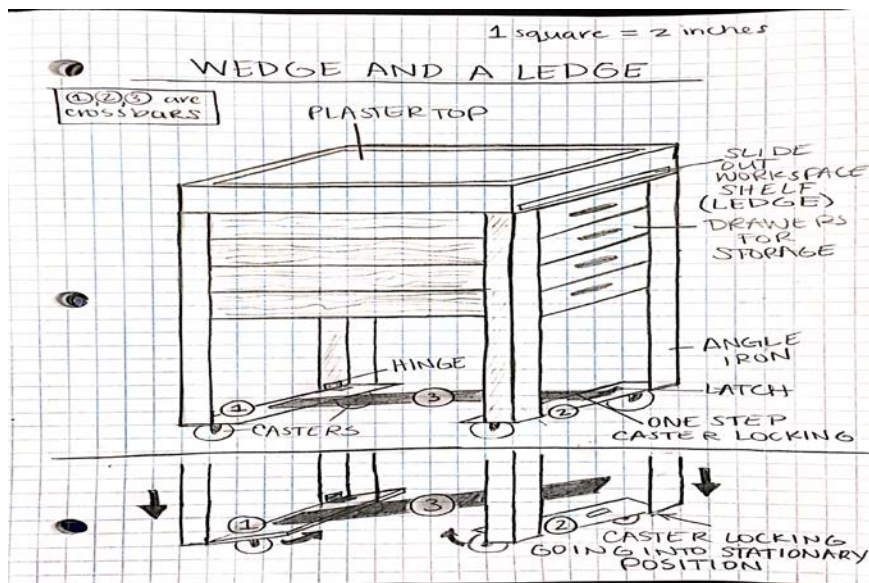 1 square = 2 inches
WEDGE AND A LEDGE
①,②,③ are
crossbars
PLASTER TOP
SLIDE
OUT
WORKSPACE
SHELF
(LEDGE)
DRAWERS
FOR
STORAGE
ANGLE
IRON
HINGE
LATCH
① ③ ②
CASTERS
ONE STEP
CASTER LOCKING
① ③ ②
CASTER LOCKING
GOING INTO STATIONARY
POSITION